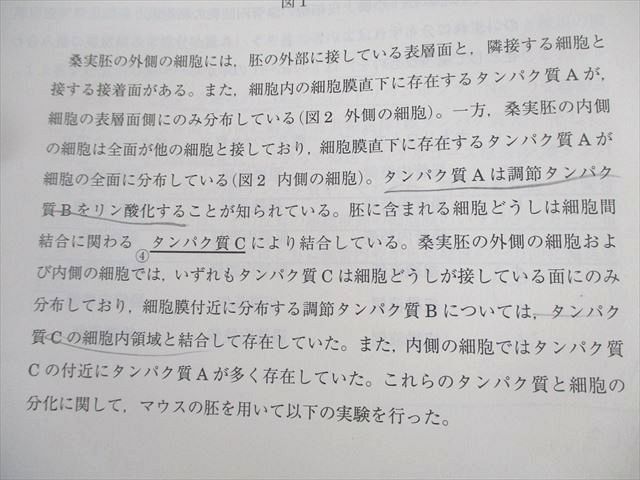 図1
桑実胚の外側の細胞には，胚の外部に接している表層面と，隣接する細胞と
接する接着面がある。また，細胞内の細胞膜直下に存在するタンパク質Aが，
細胞の表層面側にのみ分布している(図2 外側の細胞)。一方，桑実胚の内側
の細胞は全面が他の細胞と接しており，細胞膜直下に存在するタンパク質Aが
細胞の全面に分布している(図2 内側の細胞)。タンパク質Aは調節タンパク
質Bをリン酸化することが知られている。胚に含まれる細胞どうしは細胞間
結合に関わる ④タンパク質Cにより結合している。桑実胚の外側の細胞およ
び内側の細胞では，いずれもタンパク質Cは細胞どうしが接している面にのみ
分布しており，細胞膜付近に分布する調節タンパク質Bについては，タンパク
質Cの細胞内領域と結合して存在していた。また，内側の細胞ではタンパク質
Cの付近にタンパク質Aが多く存在していた。これらのタンパク質と細胞の
分化に関して，マウスの胚を用いて以下の実験を行った。